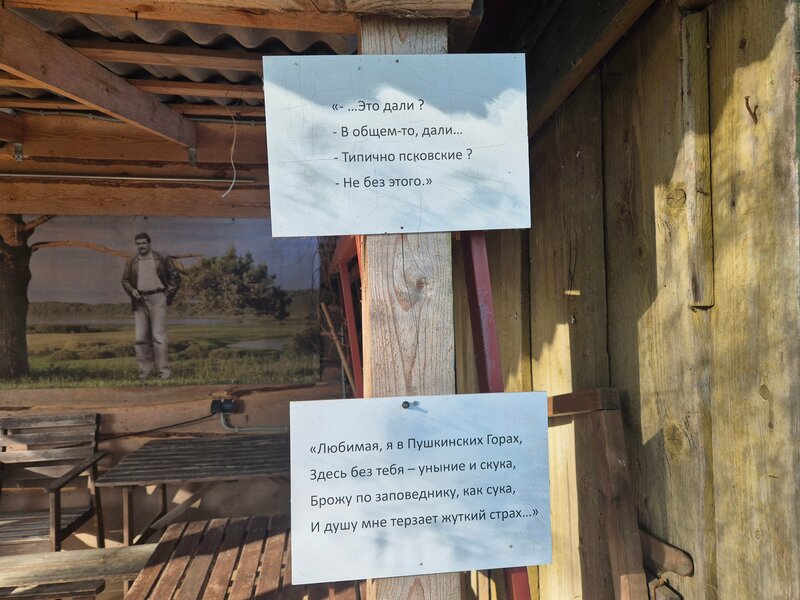 «- ...Это дали ?
- В общем-то, дали...
- Типично псковские ?
- Не без этого.»
«Любимая, я в Пушкинских Горах,
Здесь без тебя – уныние и скука,
Брожу по заповеднику, как сука,
И душу мне терзает жуткий страх...»